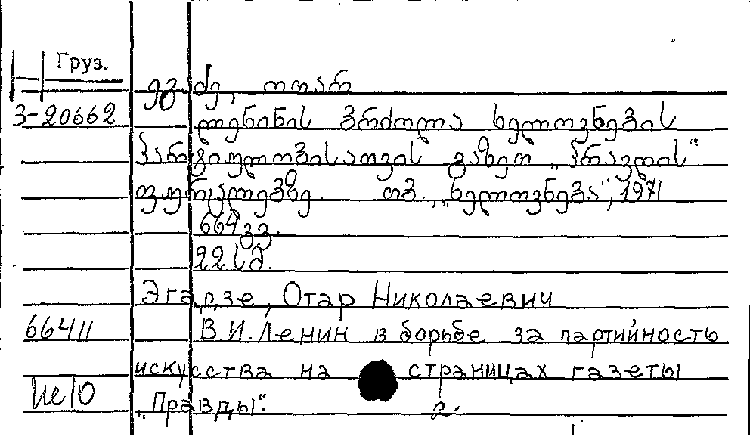 Груз.
ეგაძე, ოთარ
3-20662
ლენინის ბრძოლა ხელოვნების
პარტიულობისათვის გაზეთ „პრავდის“
ფურცლებზე. თბ., „ხელოვნება“, 1971
664 გვ.
22 სმ.
Эгадзе, Отар Николаевич
66411 В.И.Ленин в борьбе за партийность
искусства на страницах газеты
„Правды“. г.